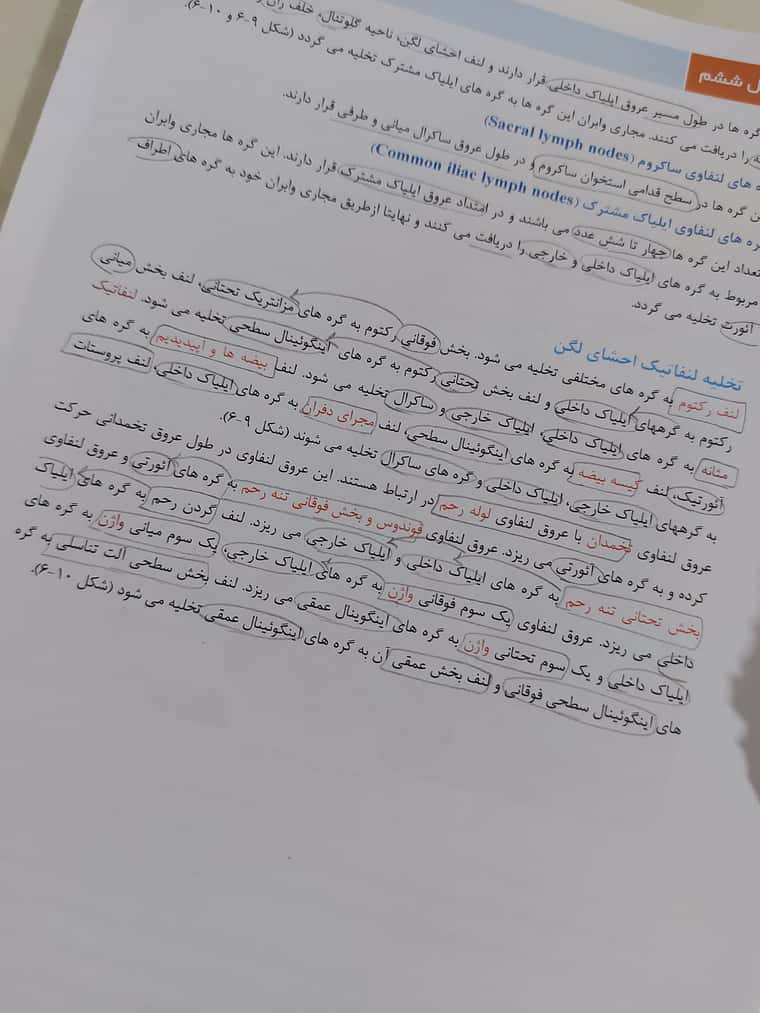 ل ششم
گره ها در طول مسیر عروق ایلیاک داخلی قرار دارند و لنف احشای لگن، ناحیه گلوتئال، خلف ران و
را دریافت می کنند. مجاری وابران این گره ها به گره های ایلیاک مشترک تخلیه می گردد (شکل ۹-۶ و ۱۰-۶).
ه های لنفاوی ساکروم (Sacral lymph nodes)
ن گره ها در سطح قدامی استخوان ساکروم و در طول عروق ساکرال میانی و طرفی قرار دارند.
ره های لنفاوی ایلیاک مشترک (Common iliac lymph nodes)
تعداد این گره ها چهار تا شش عدد می باشند و در امتداد عروق ایلیاک مشترک قرار دارند. این گره ها مجاری وابران
مربوط به گره های ایلیاک داخلی و خارجی را دریافت می کنند و نهایتا ازطریق مجاری وابران خود به گره های اطراف
آئورت تخلیه می گردد.
تخلیه لنفاتیک احشای لگن
لنف رکتوم به گره های مختلفی تخلیه می شود. بخش فوقانی رکتوم به گره های مزانتریک تحتانی، لنف بخش میانی
رکتوم به گرههای ایلیاک داخلی و لنف بخش تحتانی رکتوم به گره های اینگوئینال سطحی تخلیه می شود. لنفاتیک
مثانه به گره های ایلیاک داخلی، ایلیاک خارجی و ساکرال تخلیه می شود. لنف بیضه ها و اپیدیدیم به گره های
آئورتیک، لنف کیسه بیضه به گره های اینگوئینال سطحی، لنف مجرای دفران به گره های ایلیاک داخلی، لنف پروستات
به گرههای ایلیاک خارجی، ایلیاک داخلی و گره های ساکرال تخلیه می شوند (شکل ۹-۶).
عروق لنفاوی تخمدان با عروق لنفاوی لوله رحم در ارتباط هستند. این عروق لنفاوی در طول عروق تخمدانی حرکت
کرده و به گره های آئورتی می ریزد. عروق لنفاوی فوندوس و بخش فوقانی تنه رحم به گره های آئورتی و عروق لنفاوی
بخش تحتانی تنه رحم به گره های ایلیاک داخلی و ایلیاک خارجی می ریزد. لنف گردن رحم به گره های ایلیاک
داخلی می ریزد. عروق لنفاوی یک سوم فوقانی واژن به گره های ایلیاک خارجی، یک سوم میانی واژن به گره های
ایلیاک داخلی و یک سوم تحتانی واژن به گره های اینگوینال عمقی می ریزد. لنف بخش سطحی آلت تناسلی به گره
های اینگوئینال سطحی فوقانی و لنف بخش عمقی آن به گره های اینگوئینال عمقی تخلیه می شود (شکل ۱۰-۶).